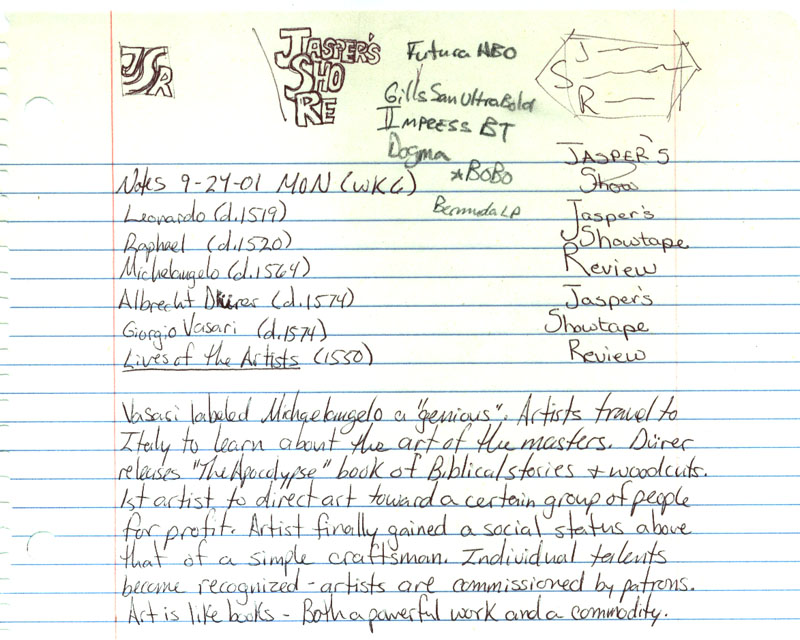 JSR
JASPER'S
SHO
RE
Futura NBO
Gills San UltraBold
IMPRESS BT
Dogma
*BOBO
Bermuda LP
J
S
R
JASPER'S
Show
Jasper's
Showtape
Review
Jasper's
Showtape
Review
Notes 9-24-01 MON (WK6)
Leonardo (d.1519)
Raphael (d.1520)
Michelangelo (d.1564)
Albrecht Dürer (d.1574)
Giorgio Vasari (d.1574)
Lives of the Artists (1550)
Vasari labeled Michaelangelo a "genious". Artists travel to
Italy to learn about the art of the masters. Dürer
releases "The Apocalypse" book of Biblical stories + woodcuts.
1st artist to direct art toward a certain group of people
for profit. Artist finally gained a social status above
that of a simple craftsman. Individual talents
become recognized - artists are commissioned by patrons.
Art is like books - Both a powerful work and a commodity.